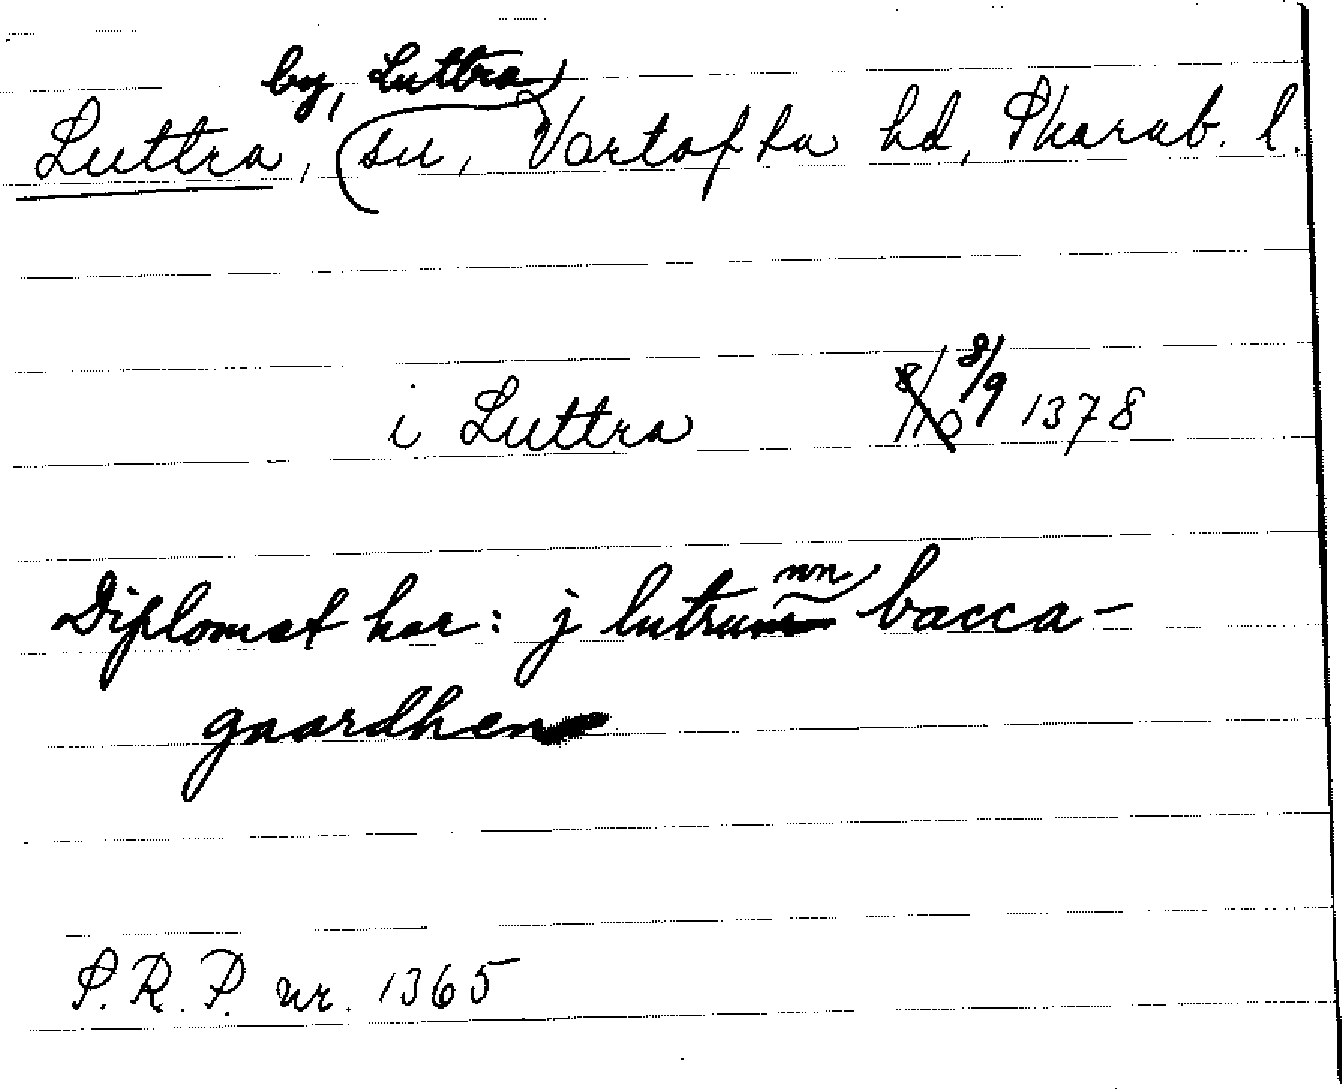 by, Luttra
Luttra, (su, Vartofta hd, Skarab. l.
i Luttra 8/10 8/9 1378
nn
Diplomet har: j lutrum bacca-
gaardhen
S.R.P. nr. 1365